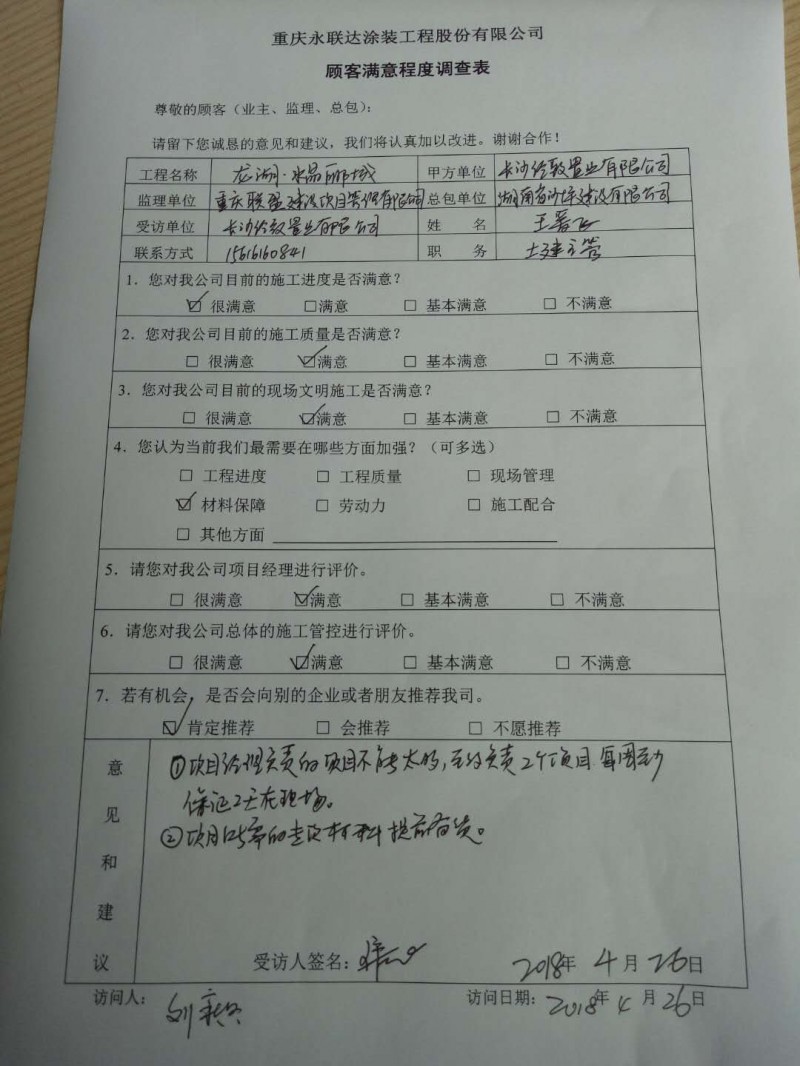 重庆永联达涂装工程股份有限公司
顾客满意程度调查表
尊敬的顾客（业主、监理、总包）：
请留下您诚恳的意见和建议，我们将认真加以改进。谢谢合作！
工程名称 龙湖·水晶郦城 甲方单位 长沙 置业有限公司
监理单位 重庆联盛建设项目管理有限公司 总包单位 湖南省沙坪建设有限公司
受访单位 长沙 置业有限公司 姓 名 王
联系方式 15616160841 职 务 土建主管
1．您对我公司目前的施工进度是否满意？
☑ 很满意 □满意 □ 基本满意 □ 不满意
2．您对我公司目前的施工质量是否满意？
□ 很满意 ☑满意 □ 基本满意 □ 不满意
3．您对我公司目前的现场文明施工是否满意？
□ 很满意 ☑满意 □ 基本满意 □ 不满意
4．您认为当前我们最需要在哪些方面加强？（可多选）
□ 工程进度 □ 工程质量 □ 现场管理
☑ 材料保障 □ 劳动力 □ 施工配合
□ 其他方面
5．请您对我公司项目经理进行评价。
□ 很满意 ☑满意 □ 基本满意 □ 不满意
6．请您对我公司总体的施工管控进行评价。
□ 很满意 ☑满意 □ 基本满意 □ 不满意
7．若有机会，是否会向别的企业或者朋友推荐我司。
☑ 肯定推荐 □ 会推荐 □ 不愿推荐
意见和建议
①项目经理负责的项目不能太多，至多负责2个项目 每周至少
保证2天在现场。
②项目所需的 材料提前备货。
受访人签名： 2018年 4月 26日
访问人： 刘 访问日期：2018年 4月 26日